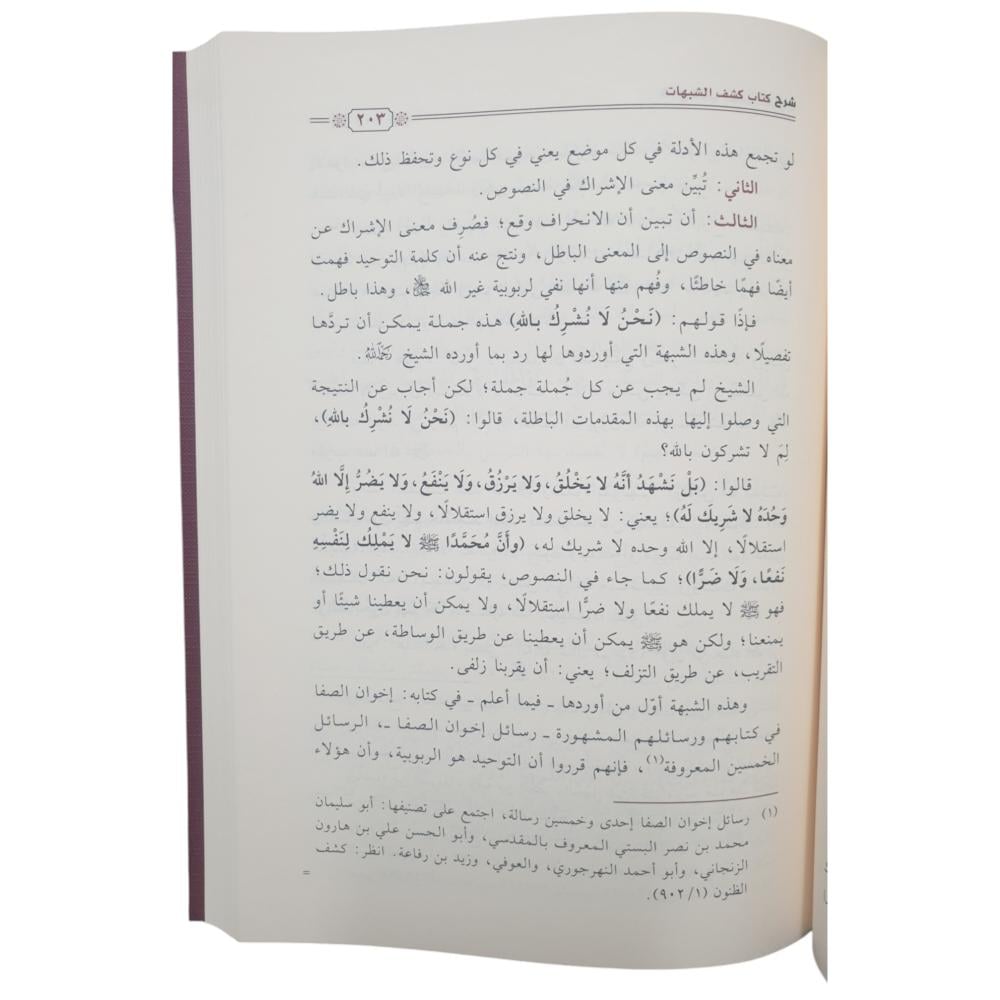 شرح كتاب كشف الشبهات
٢٠٣
لو تجمع هذه الأدلة في كل موضع يعني في كل نوع وتحفظ ذلك.
الثاني: تُبيِّن معنى الإشراك في النصوص.
الثالث: أن تبين أن الانحراف وقع؛ فصُرِف معنى الإشراك عن
معناه في النصوص إلى المعنى الباطل، ونتج عنه أن كلمة التوحيد فهمت
أيضًا فهمًا خاطئًا، وفُهم منها أنها نفي لربوبية غير الله ﷻ، وهذا باطل.
فإذًا قولهم: (نَحْنُ لَا نُشْرِكُ بِاللهِ) هذه جملة يمكن أن تردَّها
تفصيلًا، وهذه الشبهة التي أوردوها لها رد بما أورده الشيخ رَحِمَهُ اللهُ.
الشيخ لم يجب عن كل جُملة جملة؛ لكن أجاب عن النتيجة
التي وصلوا إليها بهذه المقدمات الباطلة، قالوا: (نَحْنُ لَا نُشْرِكُ بِاللهِ)،
لِمَ لا تشركون بالله؟
قالوا: (بَلْ نَشْهَدُ أنَّهُ لا يَخْلُقُ، وَلا يَرْزُقُ، وَلَا يَنْفَعُ، وَلا يَضُرُّ إِلَّا اللهُ
وَحْدَهُ لا شَرِيكَ لَهُ)؛ يعني: لا يخلق ولا يرزق استقلالًا، ولا ينفع ولا يضر
استقلالًا، إلا الله وحده لا شريك له، (وأَنَّ مُحَمَّدًا ﷺ لا يَمْلِكُ لِنَفْسِهِ
نَفعًا، وَلَا ضَرًّا)؛ كما جاء في النصوص، يقولون: نحن نقول ذلك؛
فهو ﷺ لا يملك نفعًا ولا ضرًّا استقلالًا، ولا يمكن أن يعطينا شيئًا أو
يمنعنا؛ ولكن هو ﷺ يمكن أن يعطينا عن طريق الوساطة، عن طريق
التقريب، عن طريق التزلف؛ يعني: أن يقربنا زلفى.
وهذه الشبهة أوّل من أوردها ـ فيما أعلم ـ في كتابه: إخوان الصفا
في كتابهم ورسائلهم المشهورة ـ رسائل إخوان الصفا ـ، الرسائل
الخمسين المعروفة(١)، فإنهم قرروا أن التوحيد هو الربوبية، وأن هؤلاء
(١) رسائل إخوان الصفا إحدى وخمسين رسالة، اجتمع على تصنيفها: أبو سليمان
محمد بن نصر البستي المعروف بالمقدسي، وأبو الحسن علي بن هارون
الزنجاني، وأبو أحمد النهرجوري، والعوفي، وزيد بن رفاعة. انظر: كشف
الظنون (١/ ٩٠٢).
=